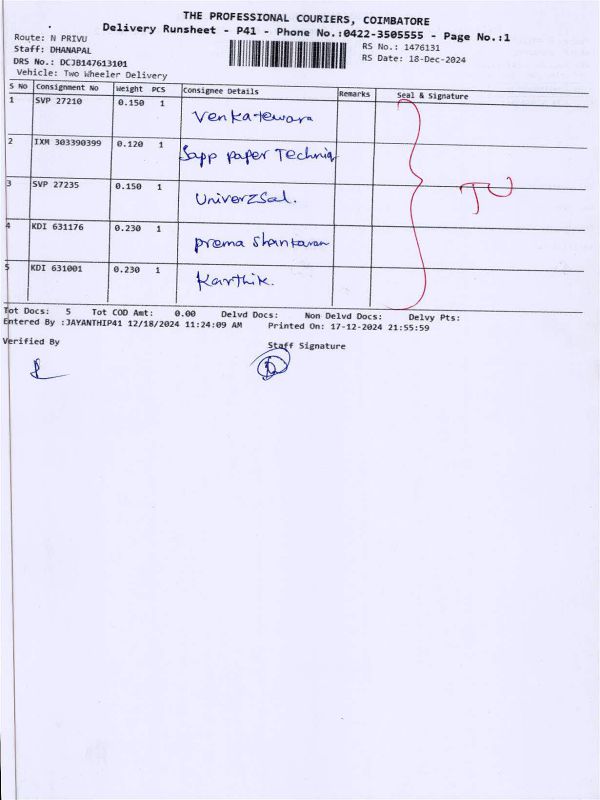 THE PROFESSIONAL COURIERS, COIMBATORE
Delivery Runsheet - P41 - Phone No.:0422-3505555 - Page No.:1
Route: N PRIVU
RS No.: 1476131
Staff: DHANAPAL
RS Date: 18-Dec-2024
DRS No.: DCJB147613101
Vehicle: Two Wheeler Delivery
S No Consignment No Weight PCS Consignee Details Remarks Seal & Signature
1 SVP 27210 0.150 1 Venkatewara
2 IXM 303390399 0.120 1 Sapp paper Techniq
3 SVP 27235 0.150 1 Univerzsal.
4 KDI 631176 0.230 1 prema Shankaran
5 KDI 631001 0.230 1 Karthik.
TU
Tot Docs: 5 Tot COD Amt: 0.00 Delvd Docs: Non Delvd Docs: Delvy Pts:
Entered By :JAYANTHIP41 12/18/2024 11:24:09 AM Printed On: 17-12-2024 21:55:59
Verified By Staff Signature